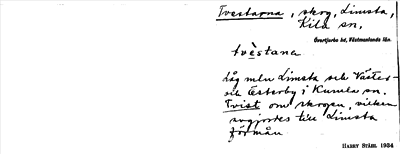 Tvestarna, skog, Limsta,
Kila sn.
Övertjurbo hd, Västmanlands län
tvèstana
Låg mln Limsta och Väster-
och Österby i Kumla sn.
Tvist om skogen, vilken
avgjordes till Limsta
förmån
HARRY STÅHL 1934